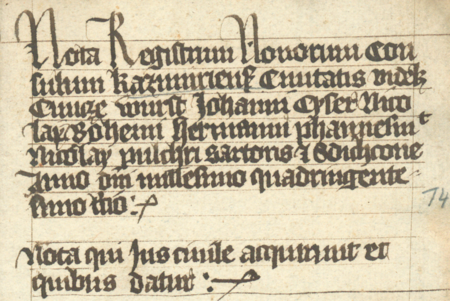 Nota Registrum Novorum Con
sulum Kazimiriens Civitatis videlz
Cuncze wurst Johanni Cyser Nico
lay Spheni Hermanni phannesmt
Nicolay pulchri sartoris &
Anno dni millesimo quadringente
simo tcio :
Nota qui Ius civile acquirunt et
quibus datur :
74